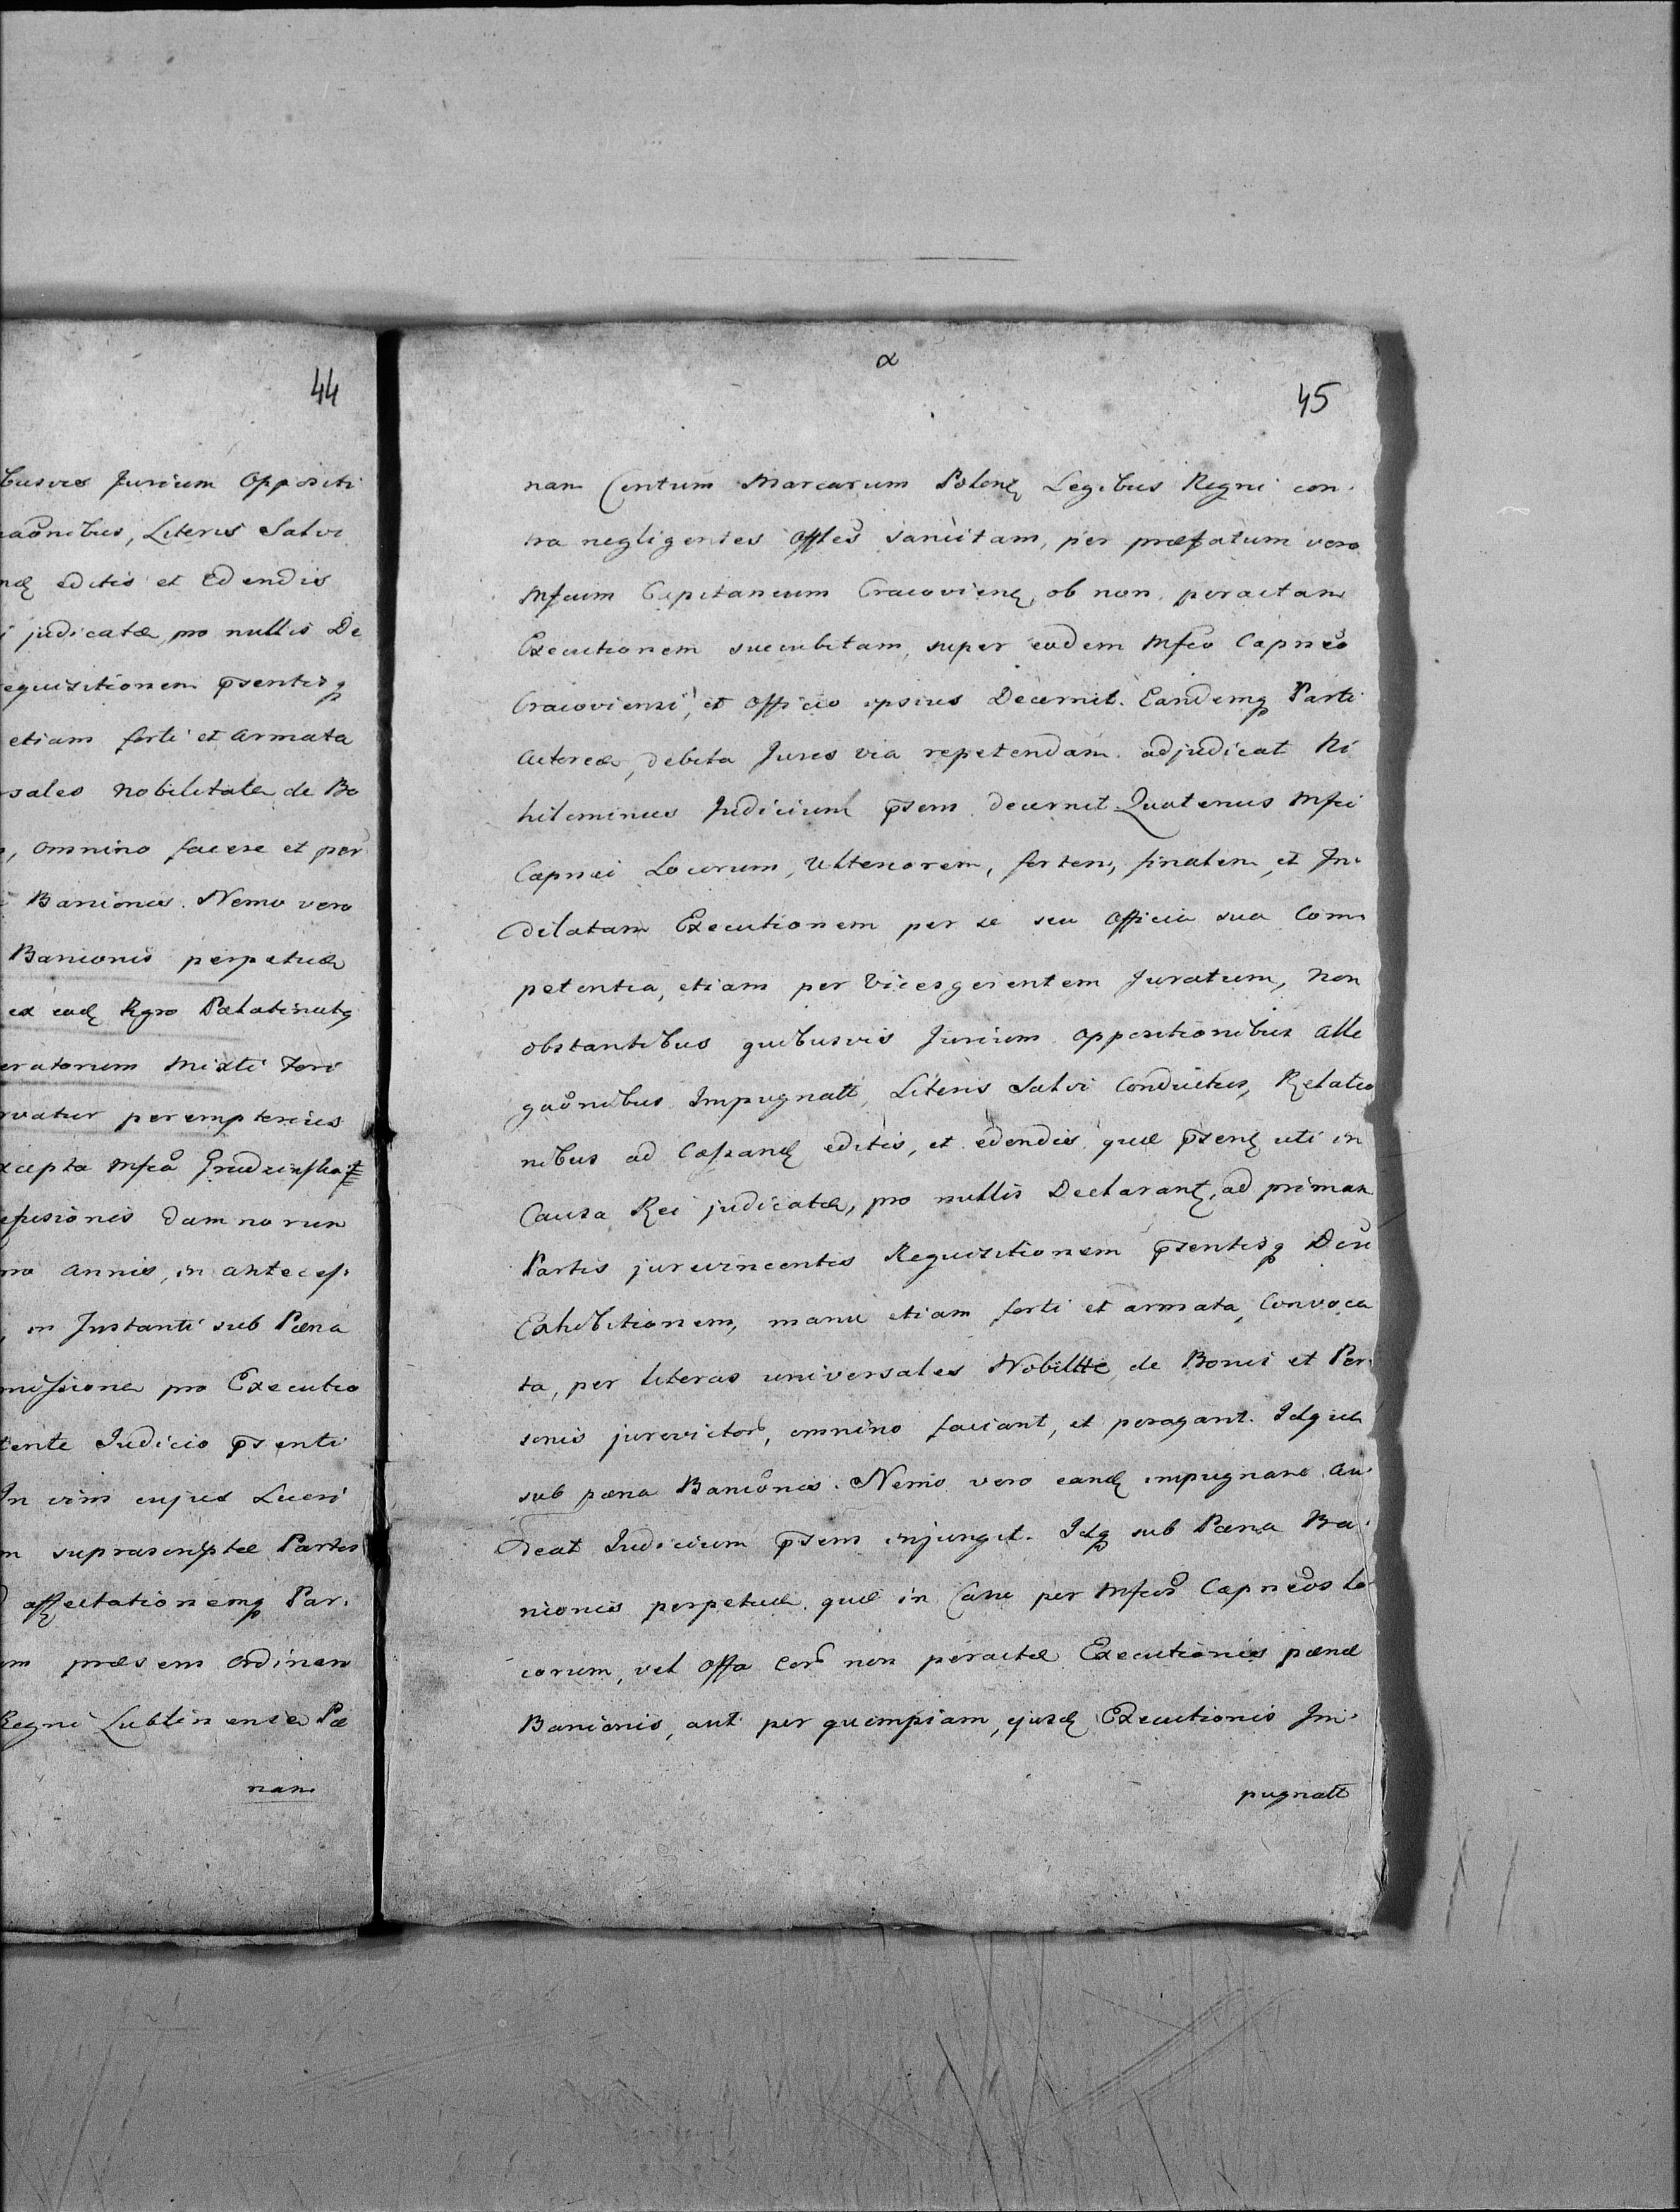 44
busvis Jurium Oppositi
caonibus, Literis Salvi
editis et Edendis
judicatæ, pro nullis De
equisitionem psentisq
etiam forti et armata
sales Nobilitate de Bo
omnino facere et per
Banionis. Nemo vero
Banionis perpetuæ
ex eodq Regno Palatinatq
eratorum Mixti Fori
rvatur peremptorius
xcepta Mfca
efusionis damnorum
annis, in antecef.
in Instanti sub Pæna
mifsione pro Executio
Judicio psenti
In vim cujus Lucri
suprascriptæ Partis
affectationemq Par.
præsens Ordinem
Regni Lublinense Pæ
nam
α
45
nam Centum Marcarum Polonq Legibus Regni con.
tra negligentes Offles sancitam, per præfatum vero
Mfcum Capitaneum Cracovienq, ob non peractam
Executionem succubitam, super eodem Mfco Capneo
Cracoviensi, et Officio ipsius Decernit. Eandemq Parti
Actoreæ, debita Juris via repetendam adjudicat Ni
hilominus Judicium psens decernit Quatenus Mfci
Capnei Locorum, Ulteriorem, fortem, finalem, et In.
dilatam Executionem per se seu Officia sua Com.
petentia, etiam per Vicesgerentem Juratum, non
obstantibus quibusvis Jurium oppositionibus alle
gaonibus Impugnatt, Literis Salvi Conductus, Relatio
nibus ad Cafsandq editis, et edendis quæ psenq uti in
Causa Rei judicatæ, pro nullis Declarantq, ad primam
Partis jurevincentis Requisitionem psentisq Dcti
Exhibitionem, manu etiam forti et armata, Convoca
ta, per literas universales Nobiltte, de Bonis et Per.
sonis jurevictor, omnino faciant, et peragant. Idque
sub pæna Banionis. Nemo vero eandq impugnare au.
deat Judicium psens injungit. Idq sub Pæna Ba.
nionis perpetuæ quæ in Casu per Mfcos Capneos lo
corum, vel Offa eor non peractæ Executionis pænæ
Banionis, aut per quempiam, ejusdq Executionis Im.
pugnatt